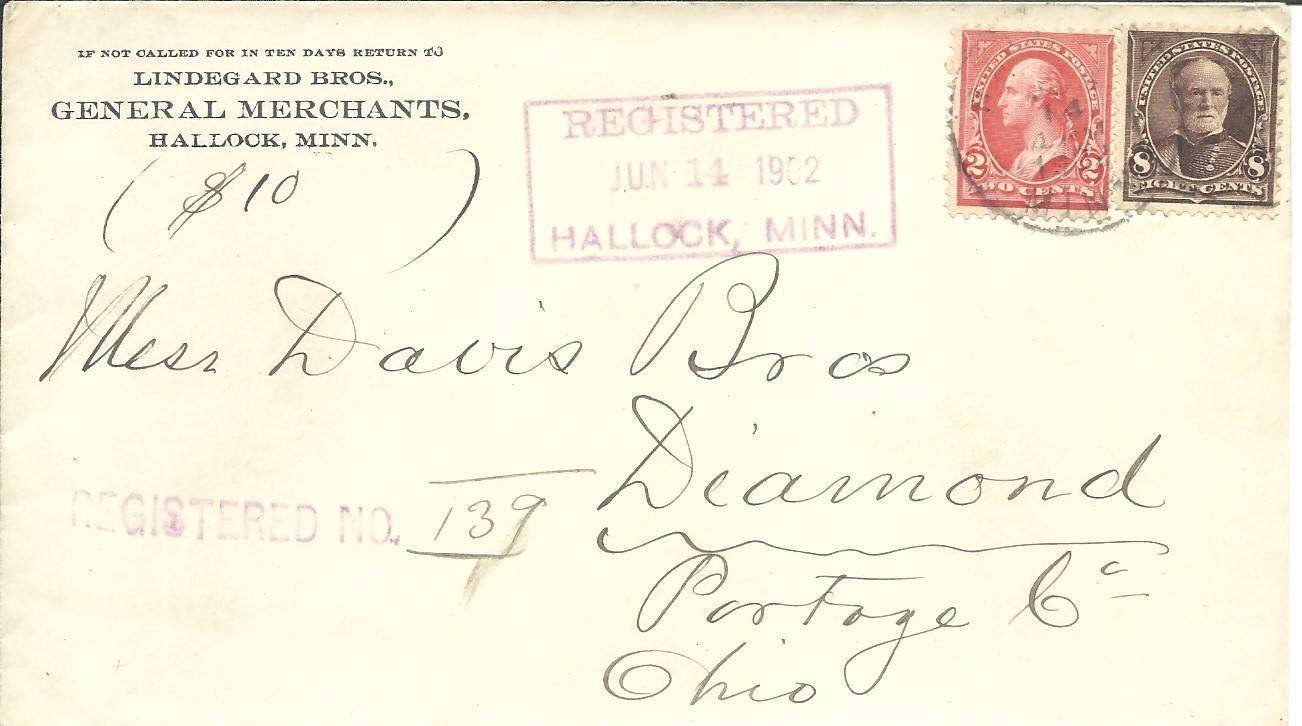 IF NOT CALLED FOR IN TEN DAYS RETURN TO
LINDEGARD BROS.,
GENERAL MERCHANTS,
HALLOCK, MINN.
($10)
REGISTERED
JUN 14 1902
HALLOCK, MINN.
UNITED STATES POSTAGE
2 2
TWO CENTS
UNITED STATES POSTAGE
8 8
EIGHT CENTS
Messr Davis Bros
Diamond
Portage Co
Ohio
REGISTERED NO. 139